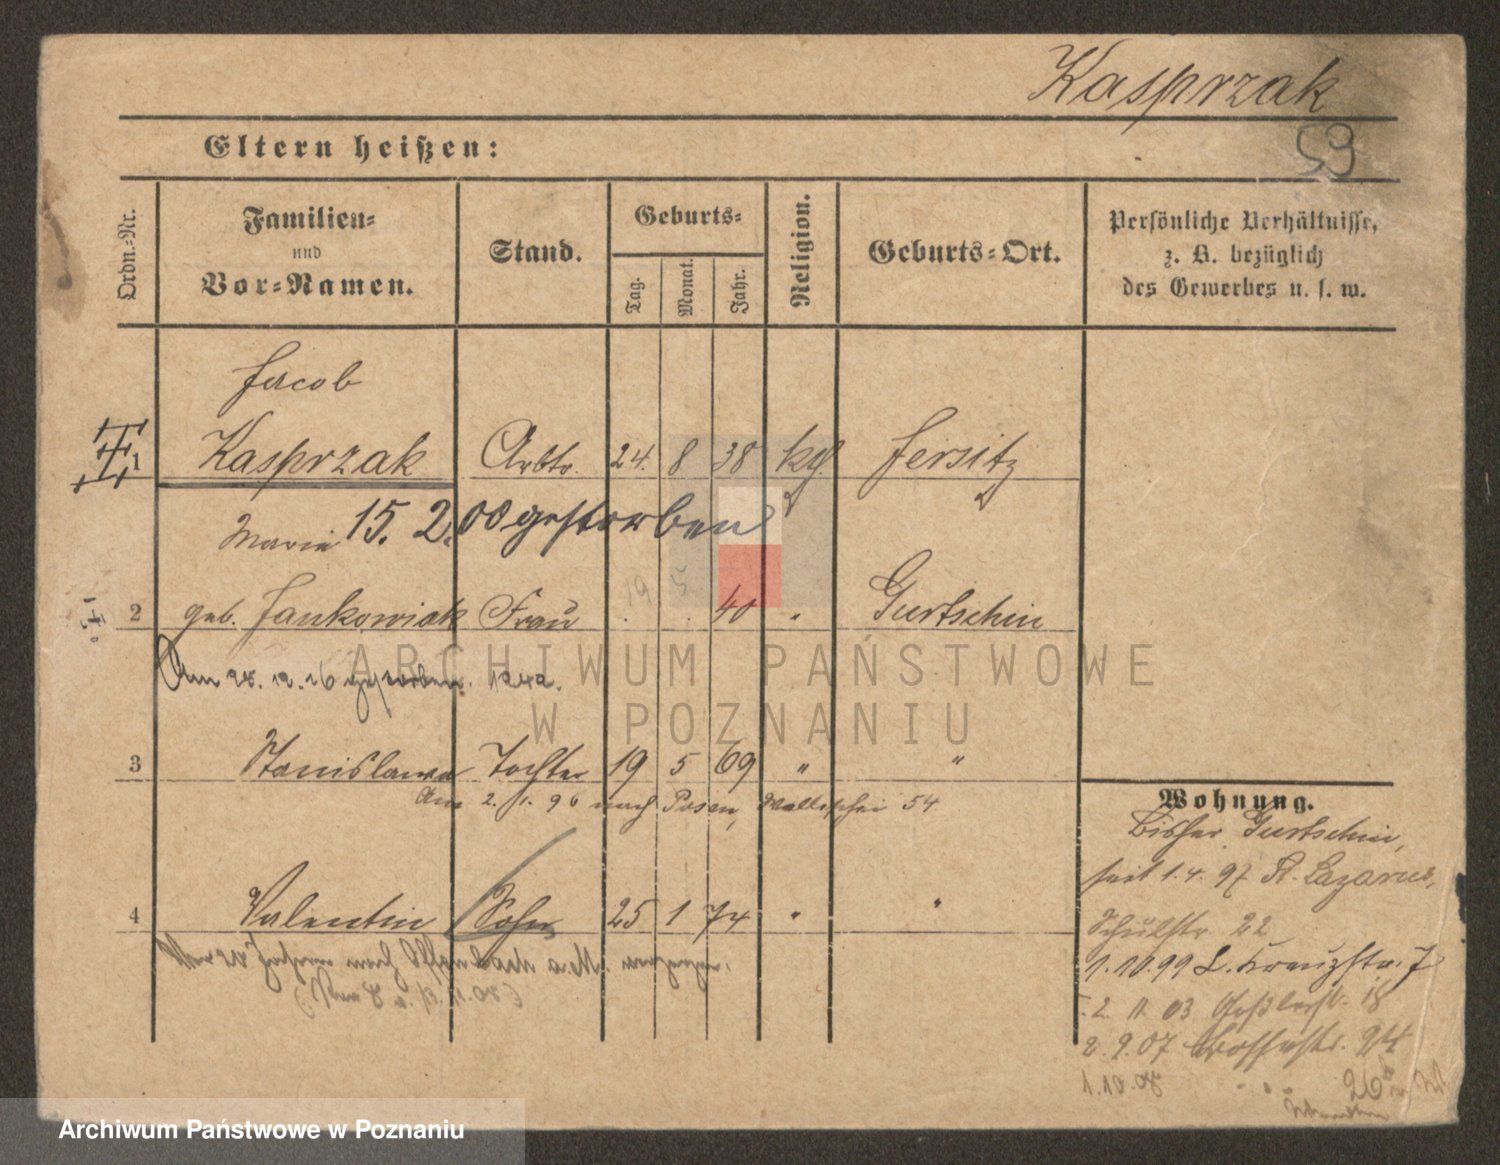 Kasprzak
59
Eltern heißen:
Ordn.-Nr.
Familien-
und
Vor-Namen.
Stand.
Geburts-
Tag.
Monat.
Jahr.
Religion.
Geburts-Ort.
Persönliche Verhältnisse,
z. B. bezüglich
des Gewerbes u. s. w.
Jacob
1 Kasprzak Arbtr. 24. 8 38 kgl Jersitz
Marie 15. 2. 00 gestorben
2 geb. Jankowiak Frau 19 5 40 " Gurtschin
Am 28. 12. 16 gestorben. 1242.
ARCHIWUM PAŃSTWOWE
W POZNANIU
3 Stanislawa Tochter 19 5 69 " "
Am 2. 1. 96 nach Posen, Wallischei 54
4 Valentin Sohn 25 1 74 " "
Wohnung.
Bisher Gurtschin,
seit 1. 4. 97 St. Lazarus,
Schulstr. 22
1. 10. 99 L. Kreuzstr. 7
2. 11. 03 Geßlerstr. 18
2. 9. 07 24
1. 10. 08 " " 26
Archiwum Państwowe w Poznaniu